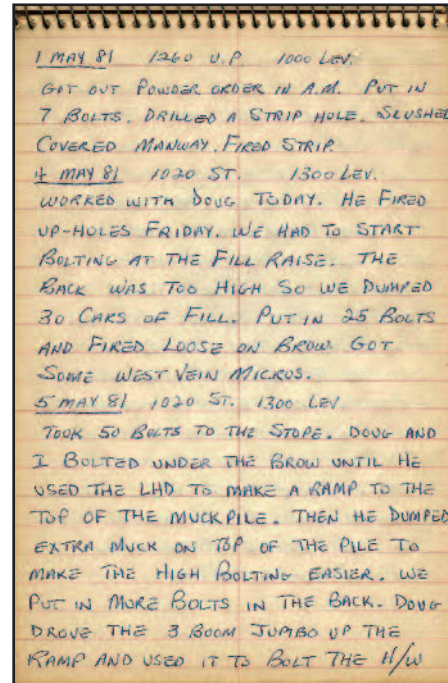 1 MAY 81 1260 U.P 1000 LEV.
GOT OUT POWDER ORDER IN A.M. PUT IN
7 BOLTS. DRILLED A STRIP HOLE. SLUSHED
COVERED MANWAY. FIRED STRIP.
4 MAY 81 1020 ST. 1300 LEV.
WORKED WITH DOUG TODAY. HE FIRED
UP-HOLES FRIDAY. WE HAD TO START
BOLTING AT THE FILL RAISE. THE
BACK WAS TOO HIGH SO WE DUMPED
30 CARS OF FILL. PUT IN 25 BOLTS
AND FIRED LOOSE ON BROW. GOT
SOME WEST VEIN MICROS.
5 MAY 81 1020 ST. 1300 LEV.
TOOK 50 BOLTS TO THE STOPE. DOUG AND
I BOLTED UNDER THE BROW UNTIL HE
USED THE LHD TO MAKE A RAMP TO THE
TOP OF THE MUCKPILE. THEN HE DUMPED
EXTRA MUCK ON TOP OF THE PILE TO
MAKE THE HIGH BOLTING EASIER. WE
PUT IN MORE BOLTS IN THE BACK. DOUG
DROVE THE 3 BOOM JUMBO UP THE
RAMP AND USED IT TO BOLT THE H/W